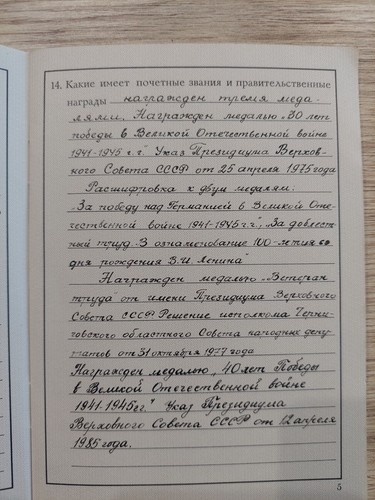 14. Какие имеет почетные звания и правительственные
награды награжден тремя меда-
лями. Награжден медалью „30 лет
победы в Великой Отечественной войне
1941-1945 г.г." Указ Президиума Верхов-
ного Совета СССР от 25 апреля 1975 года
Расшифровка к двум медалям:
„За победу над Германией в Великой Оте-
чественной войне 1941-1945 г.г.", „За доблест-
ный труд. В ознаменование 100-летия со
дня рождения В.И. Ленина"
Награжден медалью „Ветеран
труда" от имени Президиума Верховного
Совета СССР Решение исполкома Черни-
говского областного Совета народных депу-
татов от 31 октября 1977 года
Награжден медалью „40 лет Победы
в Великой Отечественной войне
1941-1945 гг." Указ Президиума
Верховного Совета СССР от 12 апреля
1985 года.
5